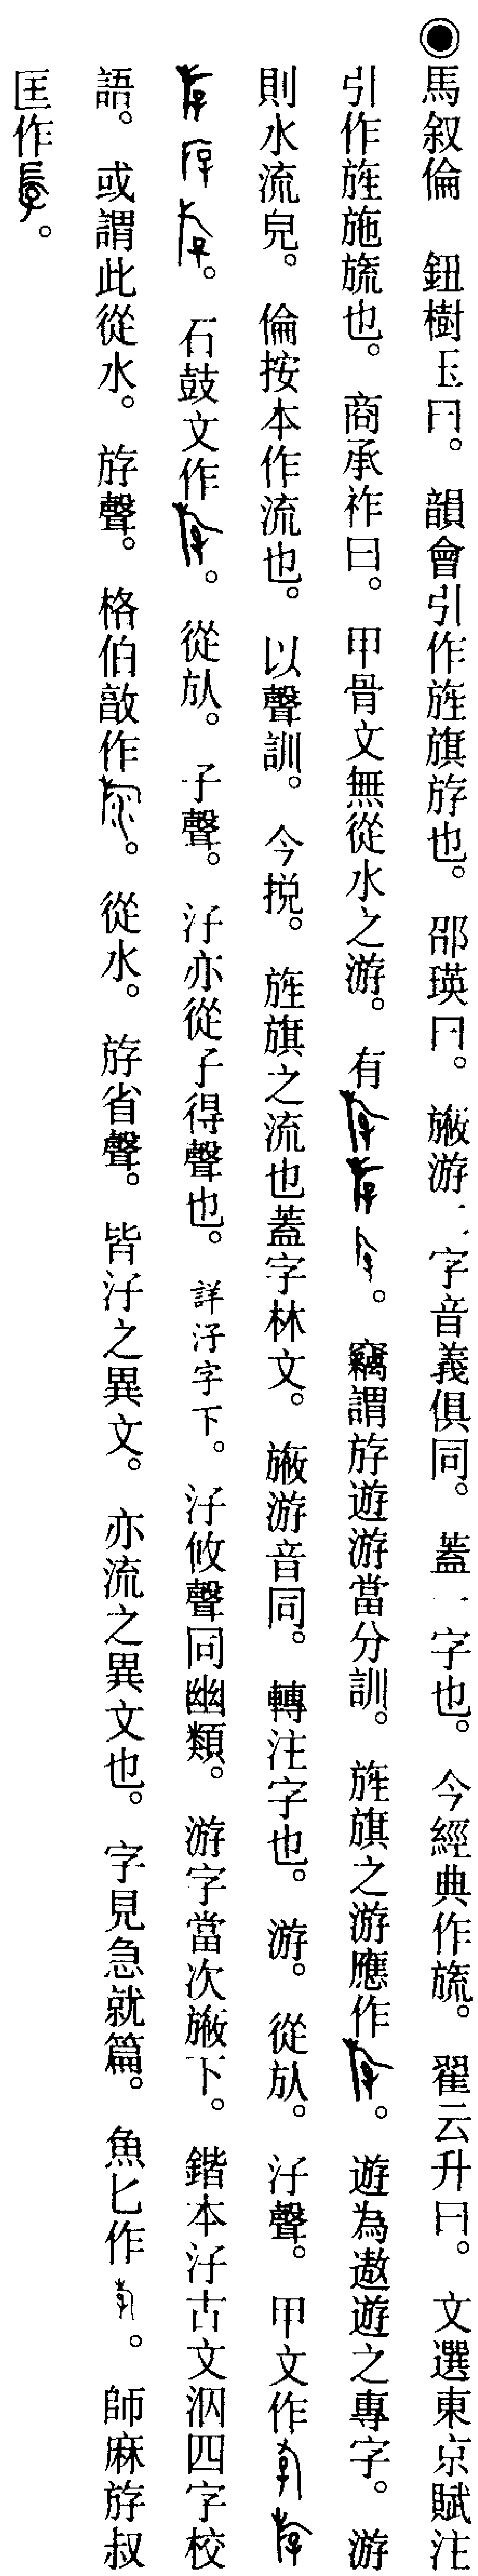 ◉馬叙倫　鈕樹玉曰。韻會引作旌旗斿也。邵瑛曰。旚游二字音義俱同。蓋一字也。今經典作旒。翟云升曰。文選東京賦注
引作旌施旒也。商承祚曰。甲骨文無從水之游。有。竊謂斿遊游當分訓。旌旗之游應作。遊為遨遊之專字。游
則水流皃。倫按本作流也。以聲訓。今挩。旌旗之流也蓋字林文。旚游音同。轉注字也。游。從㫃。汓聲。甲文作
。石鼓文作。從㫃。子聲。汓亦從子得聲也。詳汓字下。汓攸聲同幽類。游字當次旚下。鍇本汓古文泅四字校
語。或謂此從水。斿聲。格伯敔作。從水。斿省聲。皆汓之異文。亦流之異文也。字見急就篇。魚匕作。師麻斿叔
匡作。